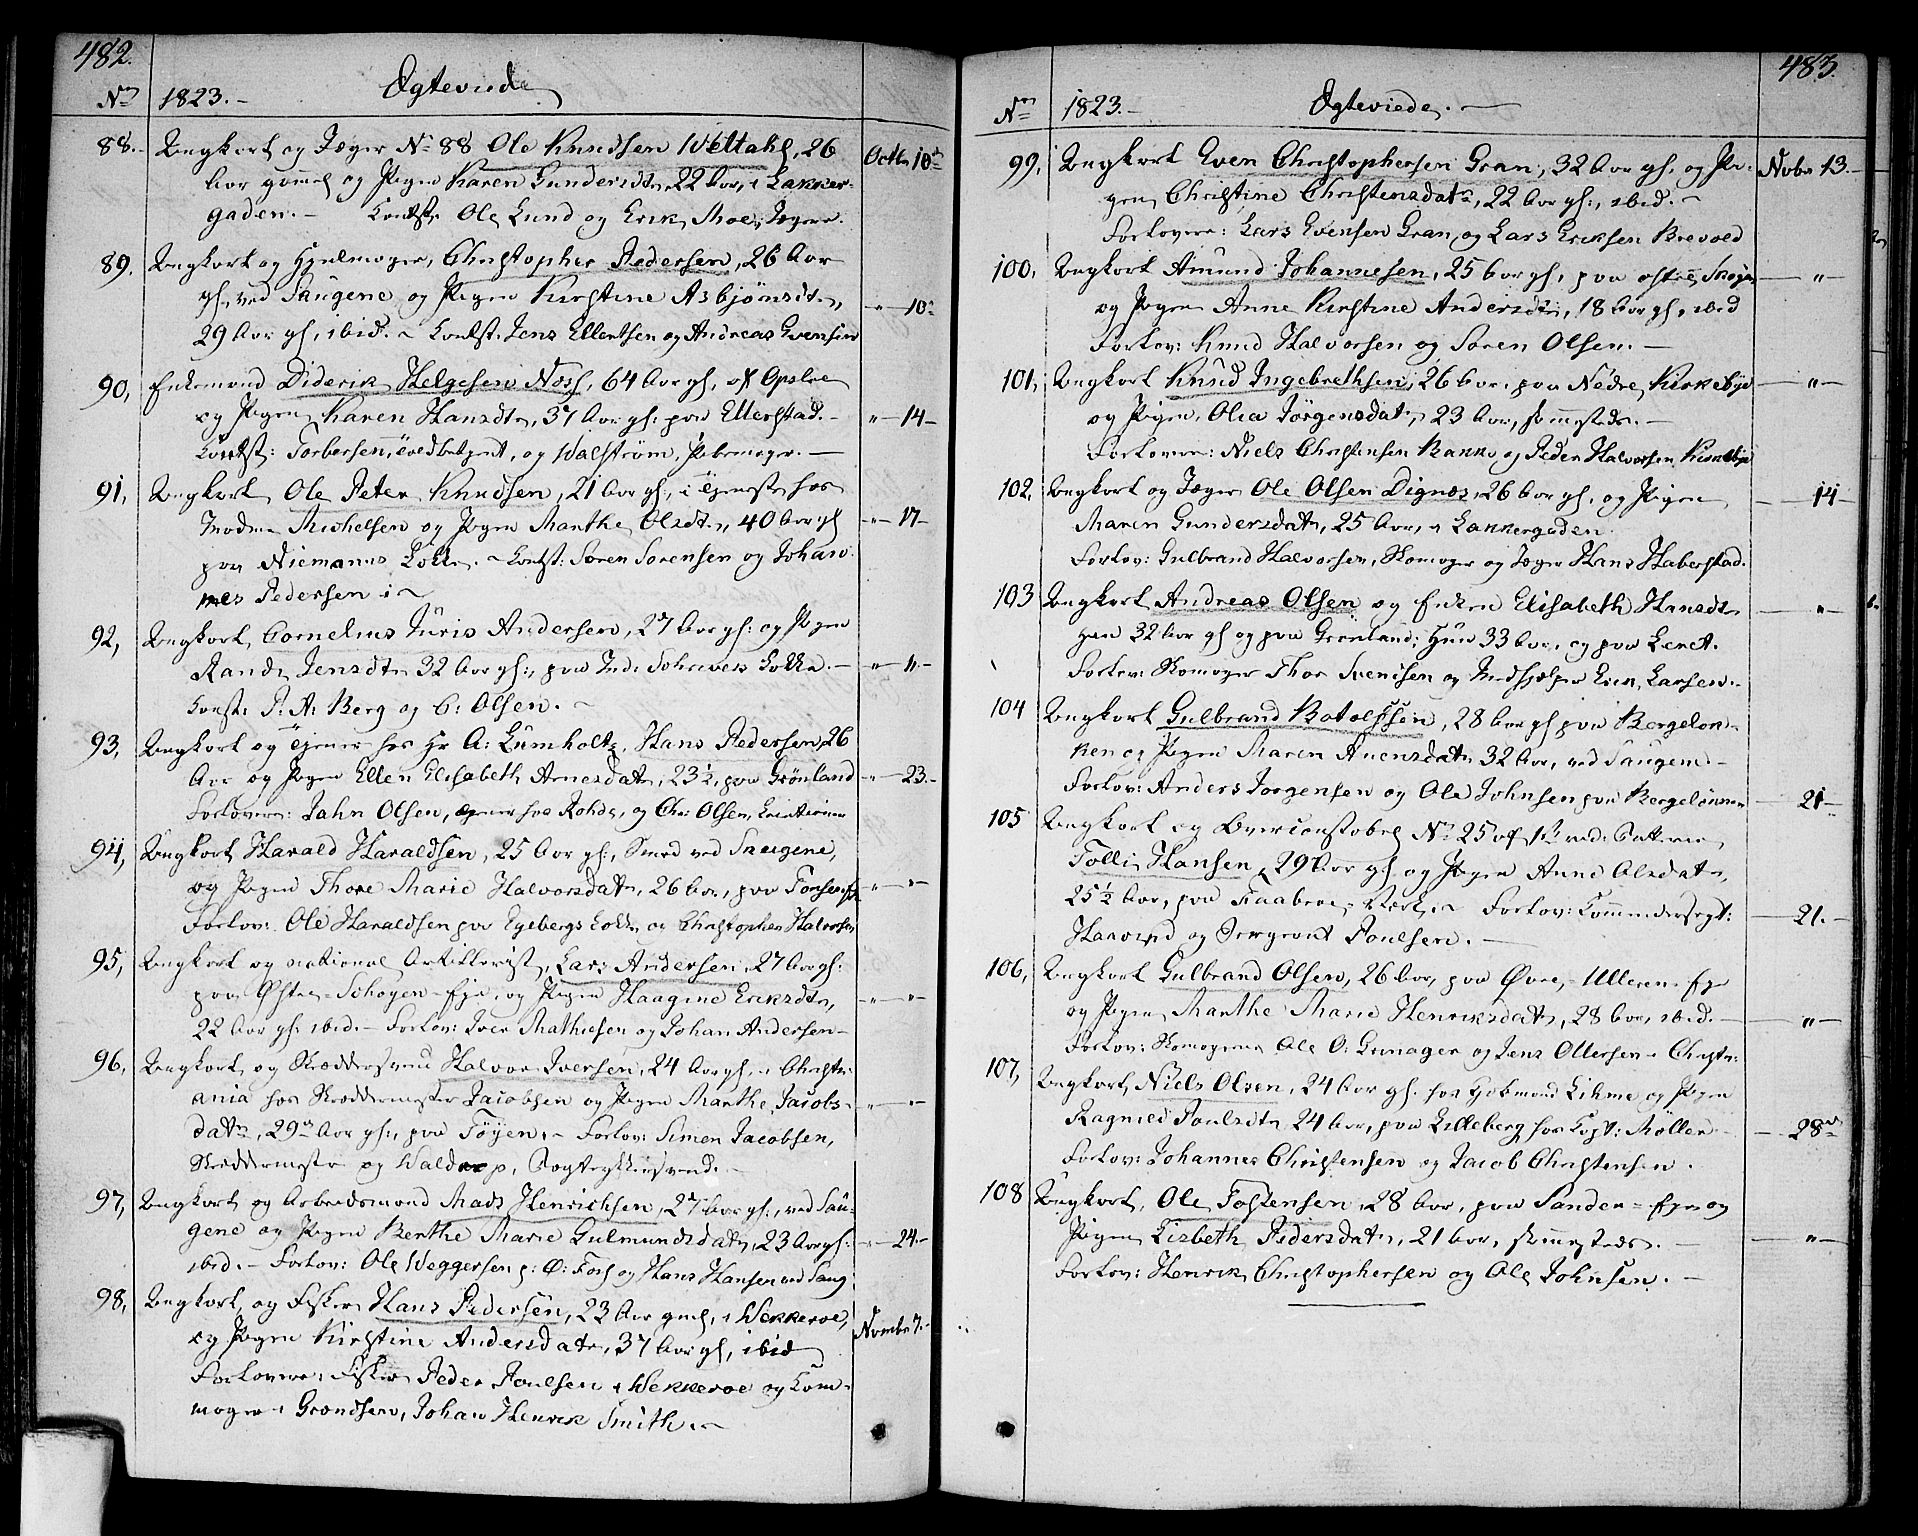 482.
No 1823. Ægteviede
88. Ungkarl og Jæger No 88 Ole Knudsen Wettahl, 26 Octbr 10de
Aar gammel og Pigen Karen Gundersdtr, 22 Aar, i Lakker-
gaden. Ole Lund og Erik Moe, Jægere.
89. Ungkarl og Hjulmager, Christopher Pedersen, 26 Aar
gl, ved Saugene og Pigen Kirstine Asbjørnsdtr, " 10de
29 Aar gl, ibid. Jens Ellertsen og Andreas Evensen
90, Enkemand Diderik Helgesen Næss, 64 Aar gl, af Opsloe
og Pigen Karen Hansdtr, 37 Aar gl: paa Ellerstad. " 14
Torbersen, og Walstrøm,
91, Ungkarl Ole Peter Knudsen, 21 Aar gl, i Tjeneste hos
Michelsen og Pigen Marthe Olsdtr, 40 Aar gl " 17
paa Niemanns Løkke. Søren Sørensen og Johan-
nes Pedersen i
92, Ungkarl, Cornelius Juris Andersen, 27 Aar gl: og Pigen
Rande Jensdtr 32 Aar gl:, paa Schrivers Løkke. " "
P. A. Berg og C: Olsen.
93, Ungkarl og Tjener hos Hr A: Lumholtz, Hans Pedersen, 26
Aar og Pigen Ellen Elisabeth Arnesdatr, 23½, paa Grønland " 23.
Forlovere: Jahn Olsen, Tjener hos Rohde, og Chr: Olsen,
94, Ungkarl Harald Haraldsen, 25 Aar gl:, Smed ved Saugene,
og Pigen Thore Marie Halvorsdatr, 26 Aar, paa " "
Forlov: Ole Haraldsen paa Egebergs Løkke og Christopher Halvorsen
95, Ungkarl og national Artillerist, Lars Andersen, 27 Aar gl:
paa Østre-Schøyen-Eje, og Pigen Haagine Eriksdtr, " "
22 Aar gl: ibid. Forlov: Iver Mathiesen og Johan Andersen
96, Ungkarl og Skreddersvend Halvor Iversen, 24 Aar gl, i Christi-
ania hos Skreddermester Jacobsen og Pigen Marthe Jacobs- " "
datr, 29 Aar gl:, paa Tøyen. Forlov: Simen Jacobsen,
Skreddermester og Walderop, Bogtrykkersvend.
97, Ungkarl og Arbeidsmand Mads Henrichsen, 27 Aar gl:, ved Sau-
gene og Pigen Berthe Marie Gulmundsdatr, 23 Aar gl: " 24
ibid. Forlov: Ole Weggersen p: Ø: Foss og Hans Hansen ved Saug:
98, Ungkarl, og Fisker Hans Pedersen, 23 Aar gml, i Wekkeroe, Novmbr 7.
og Pigen Kirstine Andersdatr, 37 Aar gl, ibid
Forlovere: Fisker Peder Poulsen i Wekkeroe og
mager i Grændsen, Johan Henrik Smith.
483.
No 1823. Ægteviede.
99, Ungkarl Even Christophersen Gran, 32 Aar gl, og Pi- Nvbr 13.
gen Christine Christensdatr, 22 Aar gl:, ibid.
Forlovere: Lars Evensen Gran, og Lars Eriksen Brevold
100, Ungkarl Amund Johannesen, 25 Aar gl, paa østre Skøyen "
og Pigen Anne Kirstine Andersdtr, 18 Aar gl, ibid
Forlov: Knud Halvorsen og Søren Olsen.
101, Ungkarl Knud Ingebrethsen, 26 Aar, paa Nedre Kirkebye "
og Pigen, Olia Jørgensdatr, 23 Aar, sammesteds.
Forlovere: Niels Christensen Bakke og Peder Halvorsen Kirkebye
102, Ungkarl og Jæger Ole Olsen Dignæs, 26 Aar gl, og Pigen 14
Maren Gundersdatr, 25 Aar, i Lakkergaden.
Forlov: Gulbrand Halvorsen, Skomager og Jæger Hans Haberstad.
103 Ungkarl Andreas Olsen og Enken Elisabeth Hansdtr "
han 32 Aar gl og paa Grønland; Hun 33 Aar, og paa Leret.
Forlov: Skomager Thor Svendsen og Medhjælper Erik Larsen.
104 Ungkarl Gulbrand Botolfsen, 28 Aar gl paa Bergeløk-
ken og Pigen Maren Auensdatr 32 Aar, ved Saugene
Forlov: Anders Jørgensen og Ole Johnsen paa Bergeløkken 21
105 Ungkarl og Overconstabel No 25 af 1ste Batterie,
Tolli Hansen, 29 Aar gl og Pigen Anne Olsdatr,
25½ Aar, paa Forlov: Commandersergt: 21.
og Sergeant Poulsen.
106, Ungkarl Gulbrand Olsen, 26 Aar, paa Øvre-Ulleren-Eje
og Pigen Marthe Marie Henriksdatr, 28 Aar, ibid. "
Forlov: Skomagerne Ole O: Gunager og Jens Ottersen i Christi:
107, Ungkarl, Niels Olsen, 24 Aar gl: hos Kjøbmand Lihme og Pigen
Ragnild Poulsdtr 24 Aar, paa Lilleberg hos Capt: Møller 28de
Forlov: Johannes Christensen og Jacob Christensen.
108 Ungkarl, Ole Tostensen, 28 Aar, paa Sanden-Eje og
Pigen Lisbeth Pedersdatr, 21 Aar, sammesteds. "
Forlov: Henrik Christophersen og Ole Johnsen.